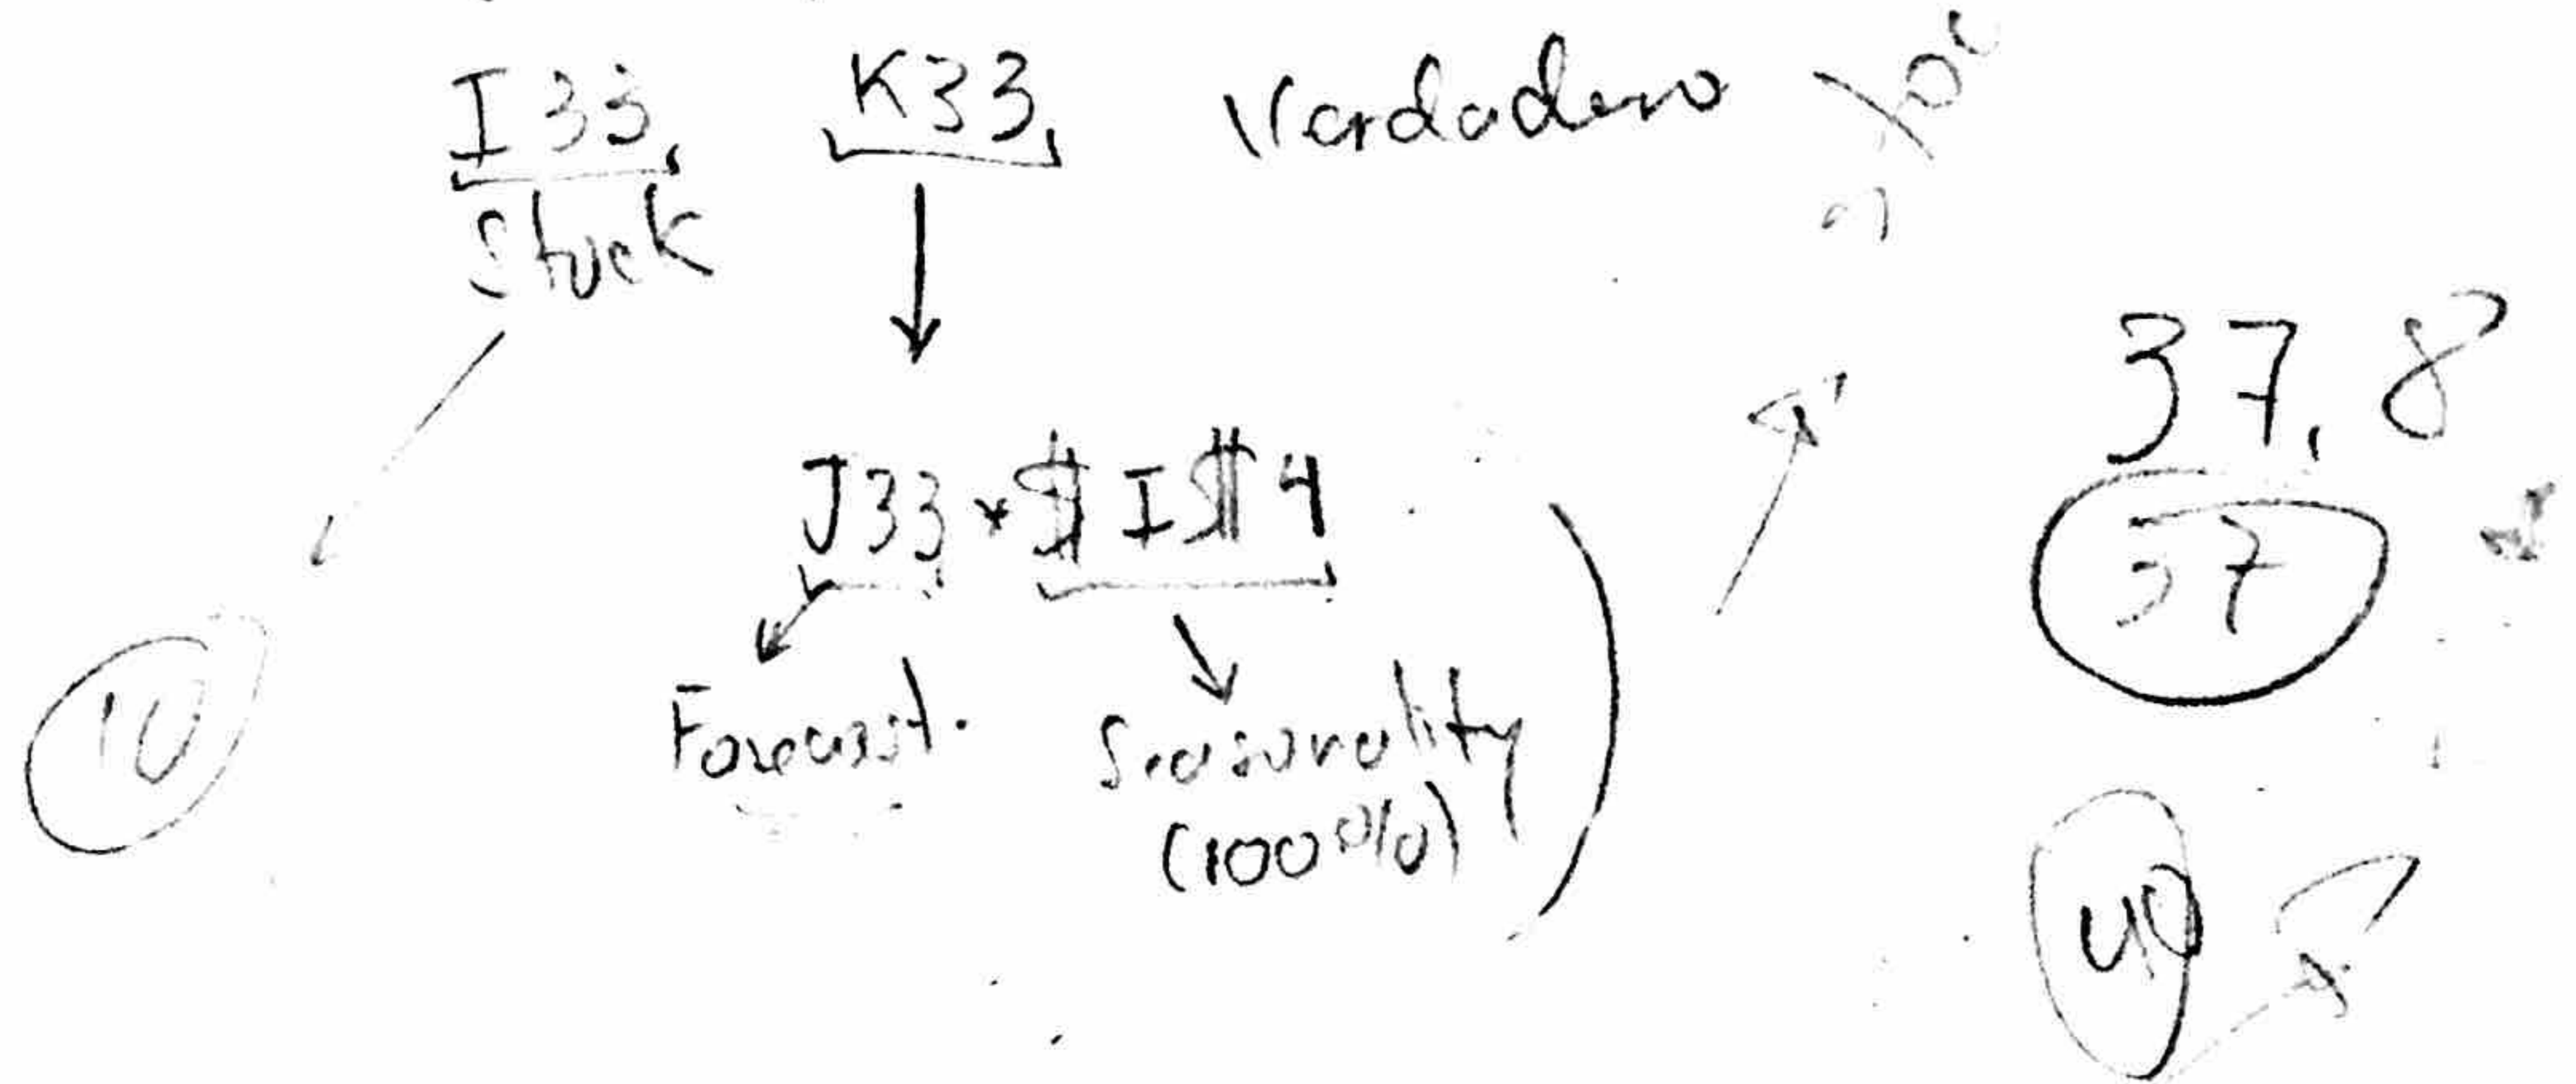 I33, K33, Verdadero
Stock
37,8
J33 * $I$4
37
Forecast. Seasonality
10
(100%)
40